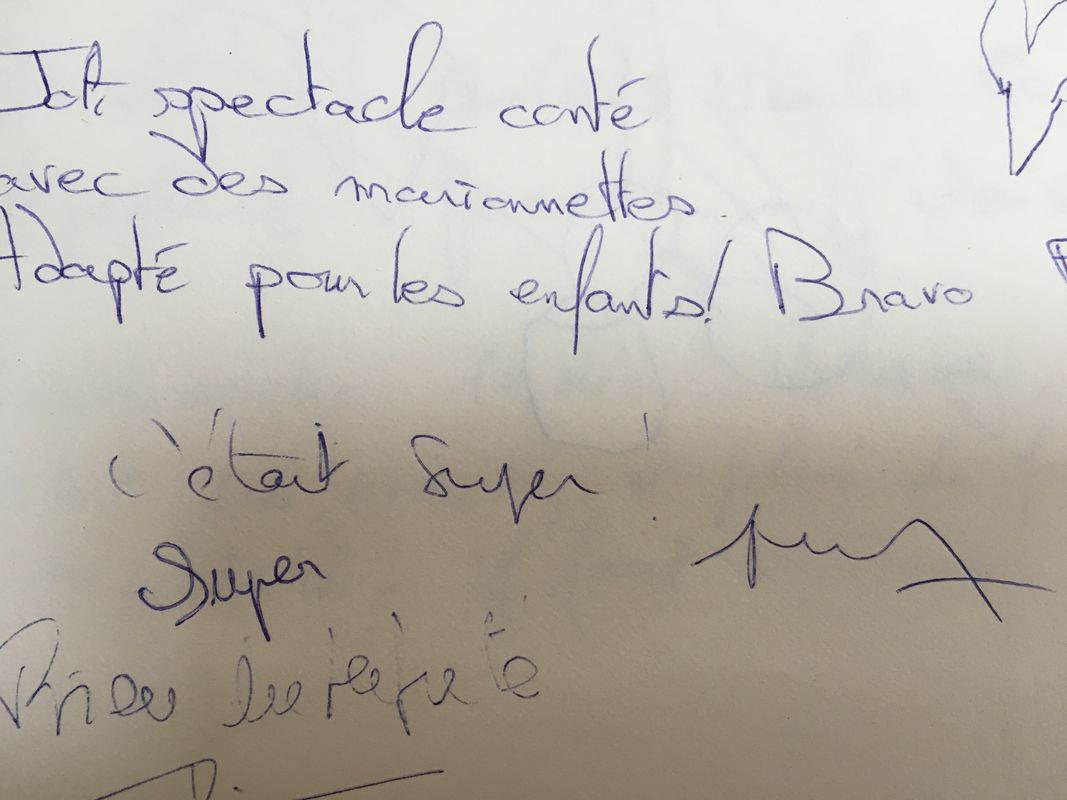 Joli spectacle conté
avec des marionnettes.
Adapté pour les enfants! Bravo
c'était super!
Super